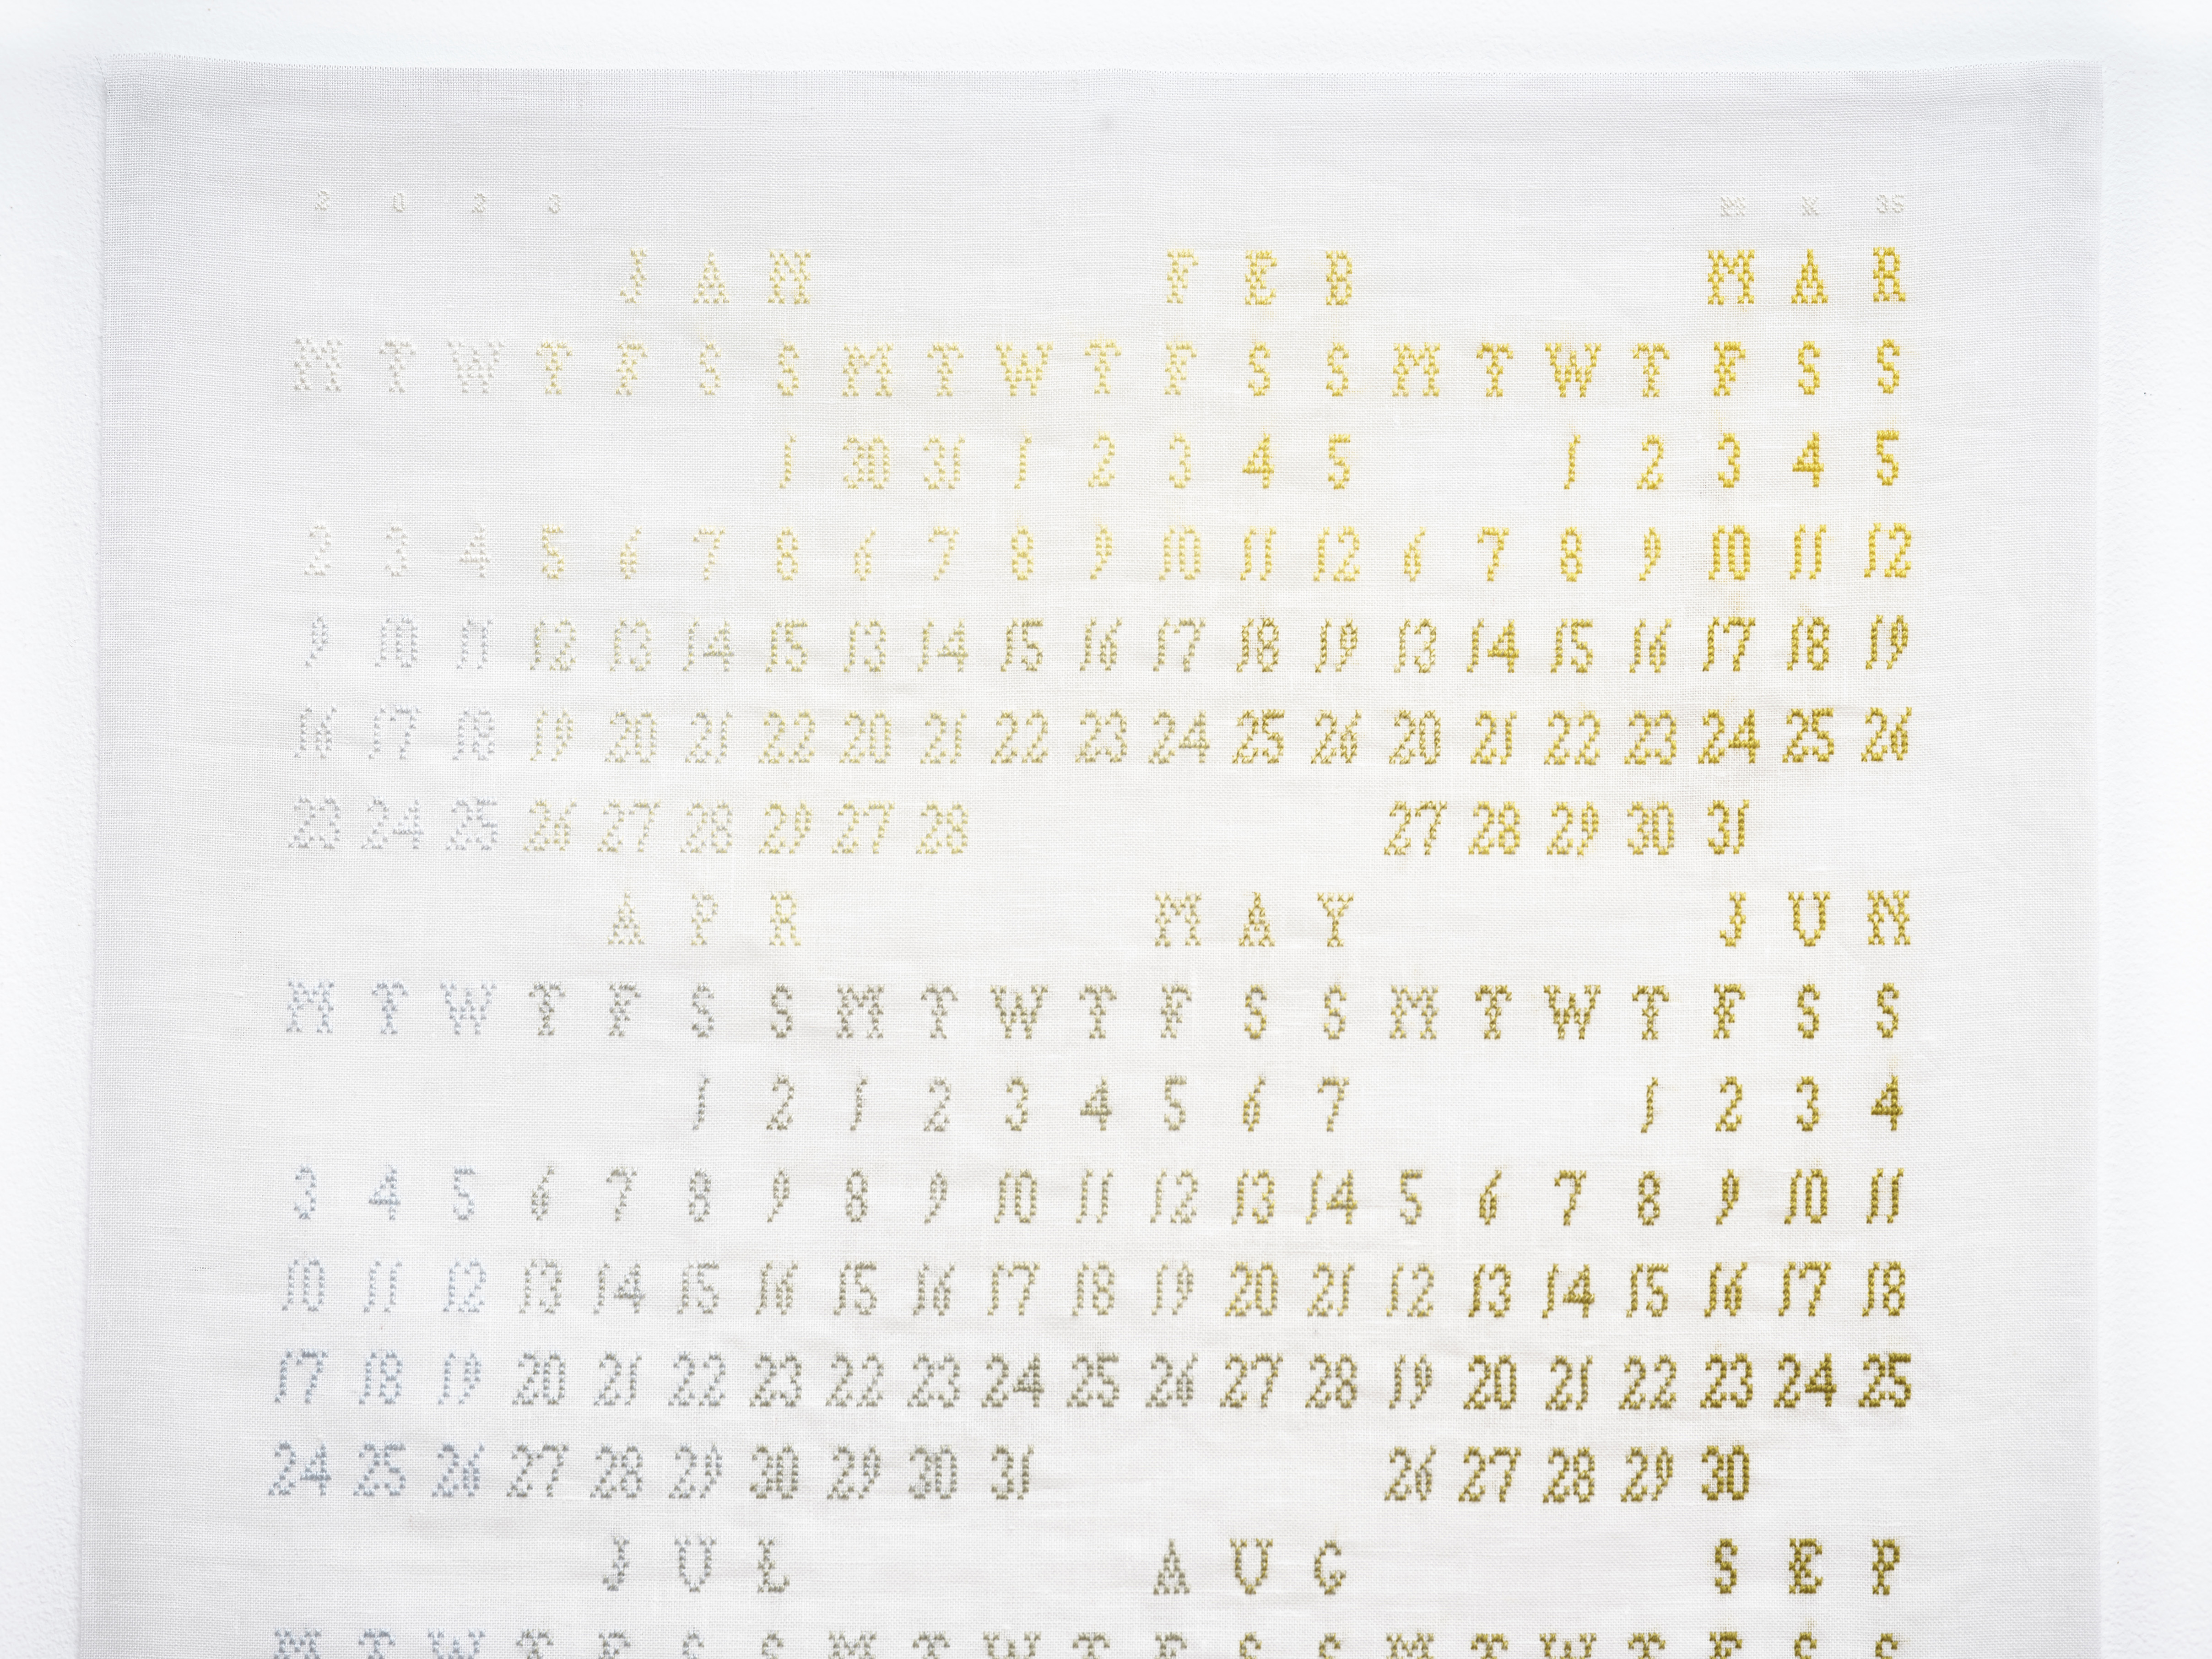 2 0 2 3 M X 36
J A N F E B M A R
M T W T F S S M T W T F S S M T W T F S S
1 30 31 1 2 3 4 5 1 2 3 4 5
2 3 4 5 6 7 8 6 7 8 9 10 11 12 6 7 8 9 10 11 12
9 10 11 12 13 14 15 13 14 15 16 17 18 19 13 14 15 16 17 18 19
16 17 18 19 20 21 22 20 21 22 23 24 25 26 20 21 22 23 24 25 26
23 24 25 26 27 28 29 27 28 27 28 29 30 31
A P R M A Y J U N
M T W T F S S M T W T F S S M T W T F S S
1 2 1 2 3 4 5 6 7 1 2 3 4
3 4 5 6 7 8 9 8 9 10 11 12 13 14 5 6 7 8 9 10 11
10 11 12 13 14 15 16 15 16 17 18 19 20 21 12 13 14 15 16 17 18
17 18 19 20 21 22 23 22 23 24 25 26 27 28 19 20 21 22 23 24 25
24 25 26 27 28 29 30 29 30 31 26 27 28 29 30
J U L A U G S E P
M T W T F S S M T W T F S S M T W T F S S